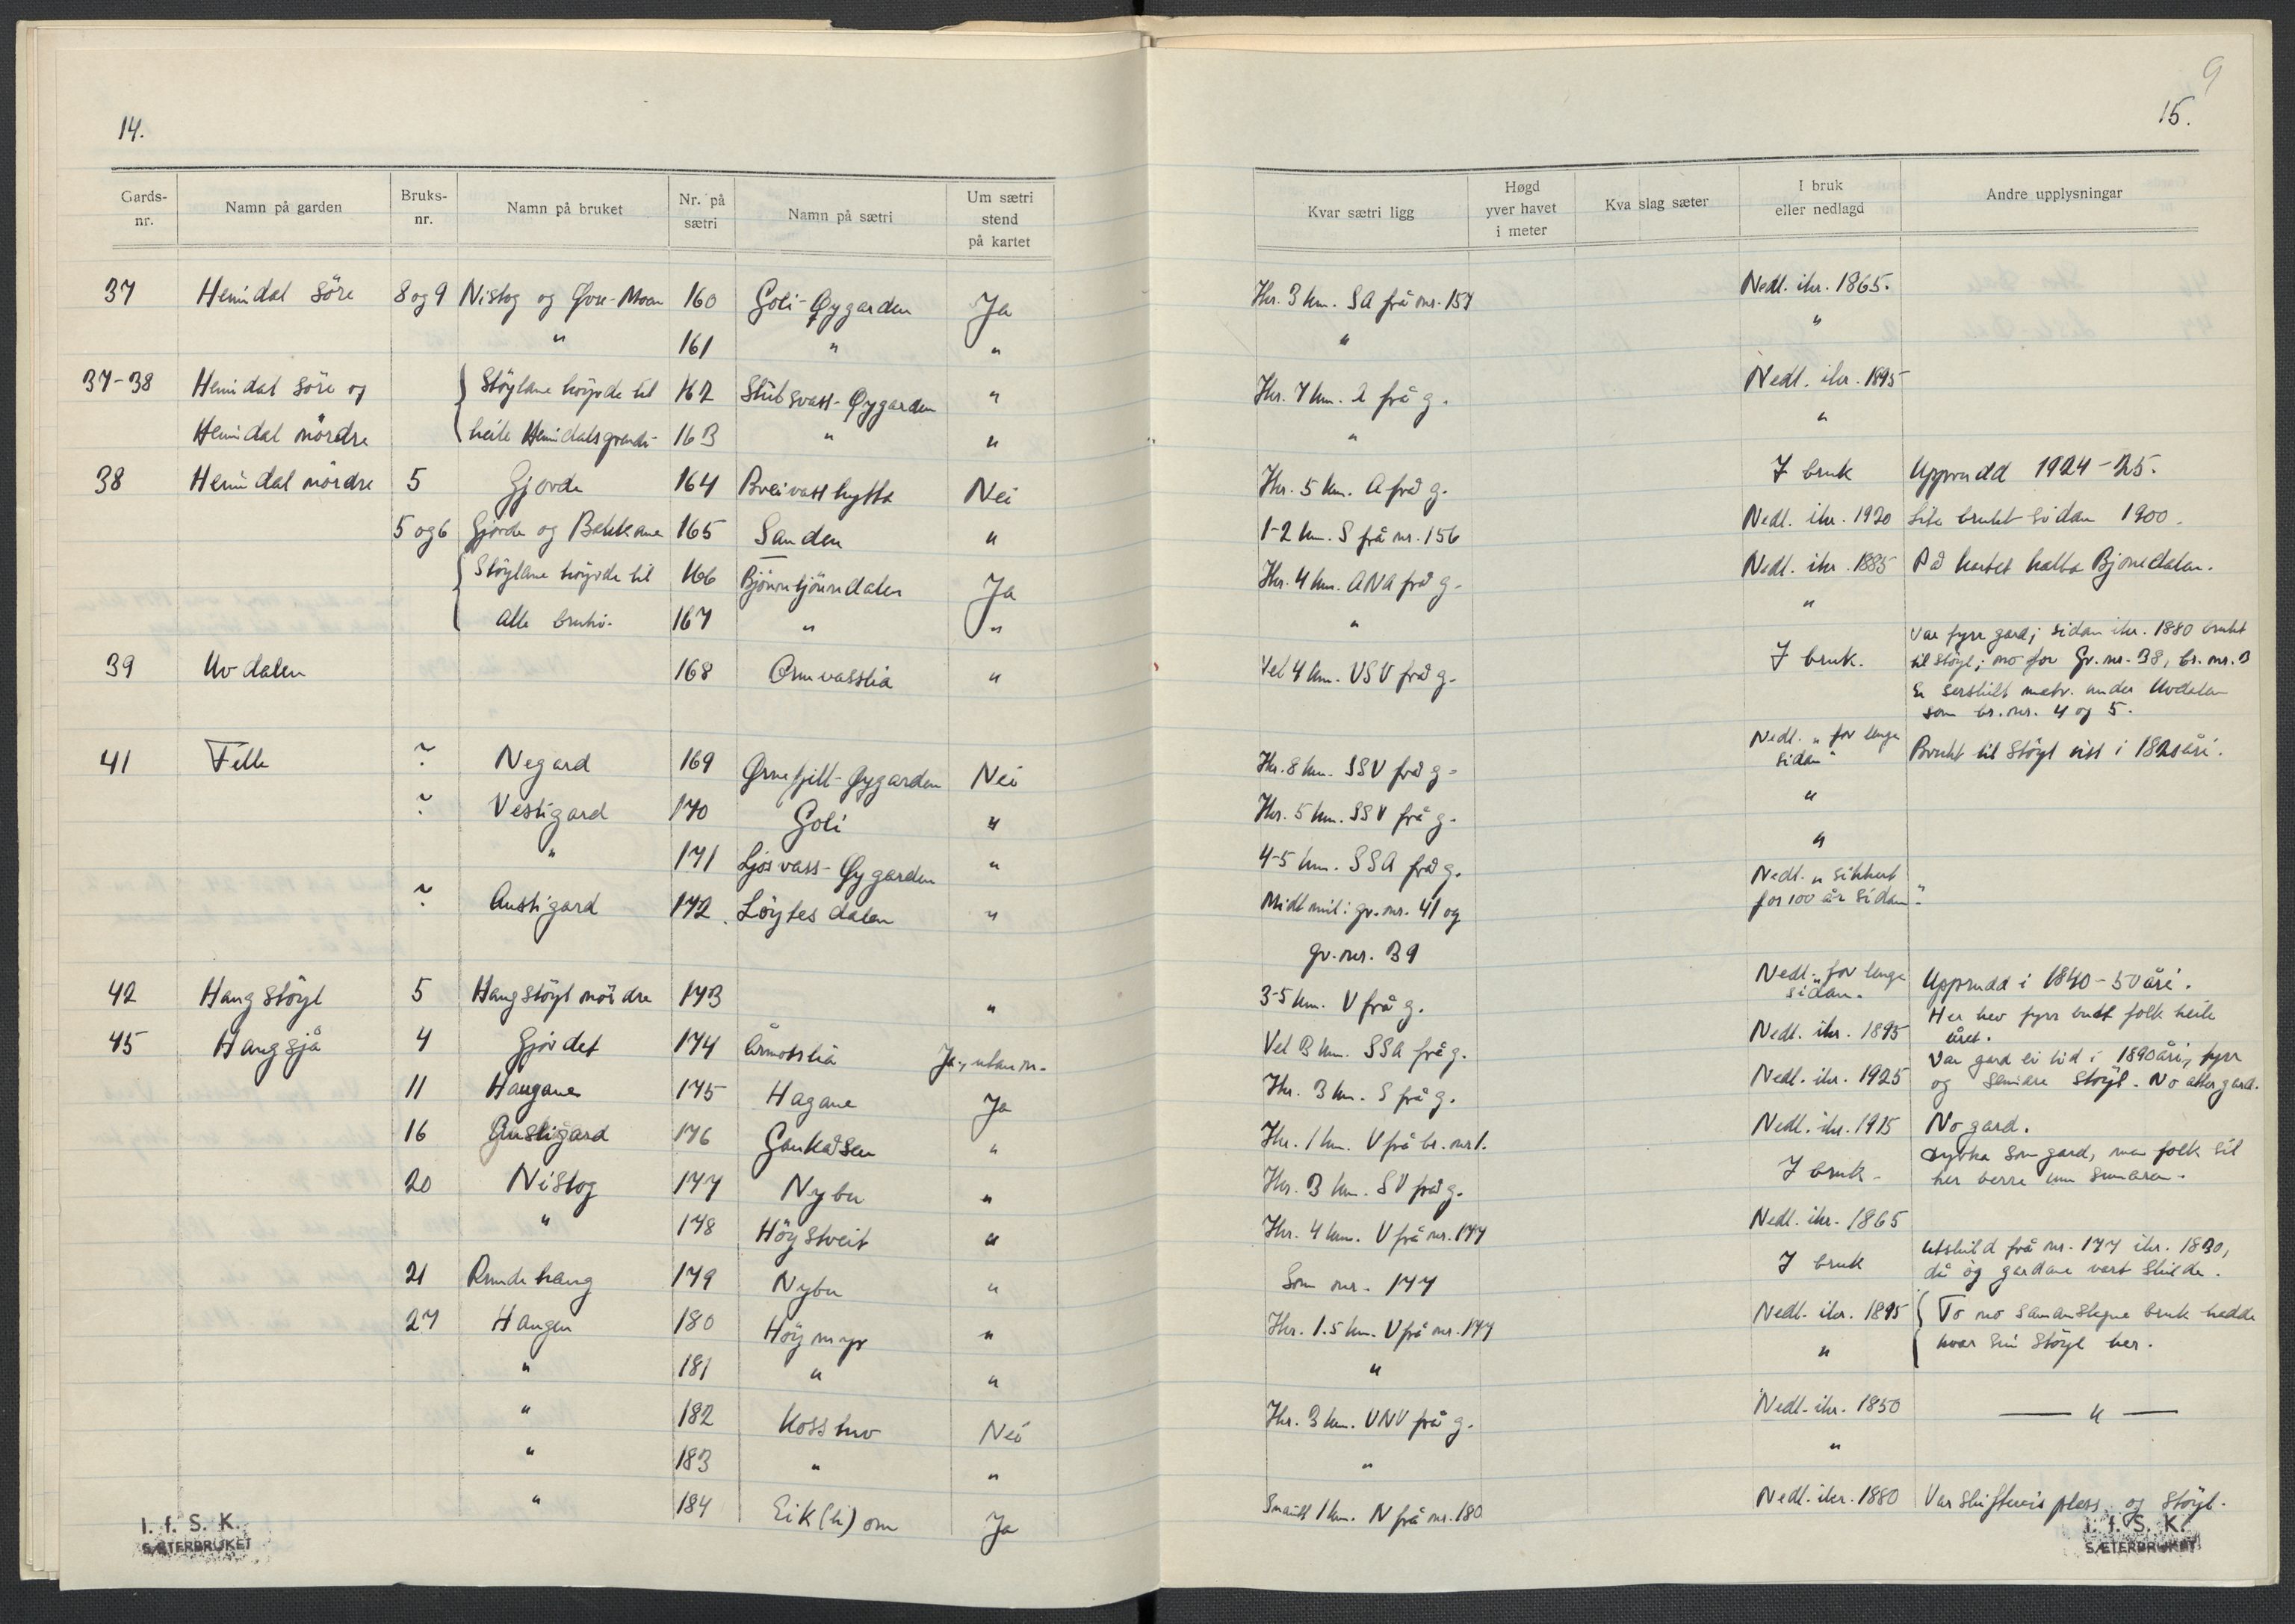 14.
Gards-nr. Namn på garden Bruks-nr. Namn på bruket Nr. på sætri Namn på sætri Um sætri stend på kartet
37 Hemdal söre 8 og 9 Nistog og Øvre-Moen 160 Goli-Øygarden Ja
" 161 " "
37-38 Hemdal söre og Stöylane höyrde til 162 Stutsvass-Øygarden "
Hemdal nördre heile Hemdalsgrendi. 163 " "
38 Hemdal nördre 5 Gjorde 164 Breivasshytta Nei
5 og 6 Gjorde og Bakkane 165 Sanden "
Stöylane höyrde til 166 Bjönntjönndalen Ja
alle bruki. 167 " "
39 Uvdalen 168 Ormvasslia "
41 Felle ? Negard 169 Ørnefjell-Øygarden Nei
? Vestigard 170 Goli "
" 171 Ljosvass-Øygarden "
? Austigard 172. Löytesdalen "
42 Haugstöyl 5 Haugstöyl nördre 173 "
45 Haugsjå 4 Gjordet 174 Åmotslia Ja, utan n.
11 Haugane 175 Hagane Ja
16 Austigard 176 Gaukåsen "
20 Nistog 177 Nybu "
" 178 Höystveit "
21 Rundehaug 179 Nybu "
27 Haugen 180 Höymyr "
" 181 " "
" 182 Kosshuv Nei
" 183 " "
" 184 Eik(h)om Ja
I. f. S. K.
SÆTERBRUKET
9
15.
Kvar sætri ligg Høgd yver havet i meter Kva slag sæter I bruk eller nedlagd Andre upplysningar
Ikr. 3 km. SA frå nr. 157 Nedl. ikr. 1865.
" "
Ikr. 7 km. A frå g. Nedl. ikr. 1895
" "
Ikr. 5 km. A frå g. I bruk Upprudd 1924-25.
1-2 km. S frå nr. 156 Nedl. ikr. 1920 Lite brukt sidan 1900.
Ikr. 4 km. ANA frå g. Nedl. ikr. 1885 På kartet kalla Bjonedalen.
" "
Vel 4 km. VSV frå g. I bruk. Var fyrr gard; sidan ikr. 1880 brukt
til stöyl; no for Gr. nr. 38, br. nr. 3
Er serskilt matr. under Uvdalen
som br. nr. 4 og 5.
Ikr. 8 km. SSV frå g. Nedl. "for lenge sidan" Brukt til stöyl sist i 1820åri.
Ikr. 5 km. SSV frå g. "
4-5 km. SSA frå g. "
Midt mil. gr. nr. 41 og Nedl. "sikkert
gr. nr. 39 for 100 år sidan".
3-5 km. V frå g. Nedl. "for lenge sidan. Upprudd i 1840-50åri.
Vel 3 km. SSA frå g. Nedl. ikr. 1895 Her hev fyrr butt folk heile året.
Ikr. 3 km. S frå g. Nedl. ikr. 1925 Var gard ei tid i 1890åri, fyrr
og seinare stöyl. No atter gard.
Ikr. 1 km. V frå br. nr. 1. Nedl. ikr. 1915 No gard.
Ikr. 3 km. SV frå g. I bruk. Dyrka som gard, men folk sit
her berre um sumaren.
Ikr. 4 km. V frå nr. 177 Nedl. ikr. 1865
Som nr. 177 I bruk Utskild frå nr. 177 ikr. 1830,
då òg gardane vart skilde.
Ikr. 1.5 km. V frå nr. 177 Nedl. ikr. 1895 To no samanslegne bruk hadde
" " kvar sin stöyl her.
Ikr. 3 km. VNV frå g. Nedl. ikr. 1850 — " —
" "
Snaudt 1 km. N frå nr. 180 Nedl. ikr. 1880 Var skiftevis plass og stöyl.
I. f. S. K.
SÆTERBRUKET